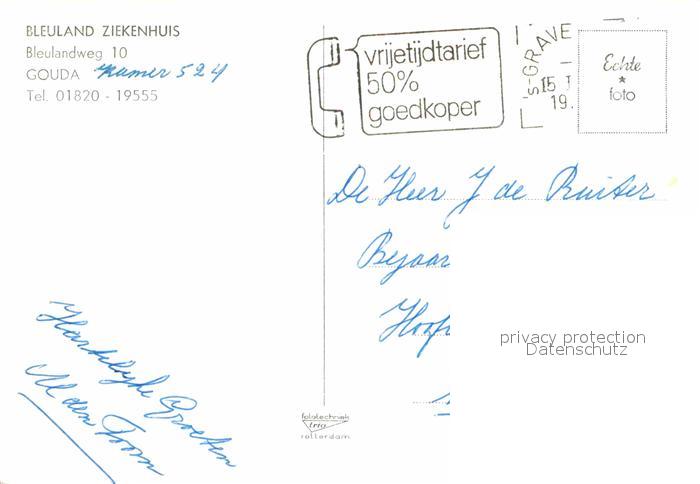 BLEULAND ZIEKENHUIS
Bleulandweg 10
GOUDA Kamer 524
Tel. 01820 - 19555
vrijetijdtarief
50%
goedkoper
's-GRAVE
15
19.
Echte
*
foto
De Heer J de Ruiter
Bejaar
Hoof
privacy protection
Datenschutz
Hartelijke Groeten
M den Toom
fototechniek
trio
rotterdam